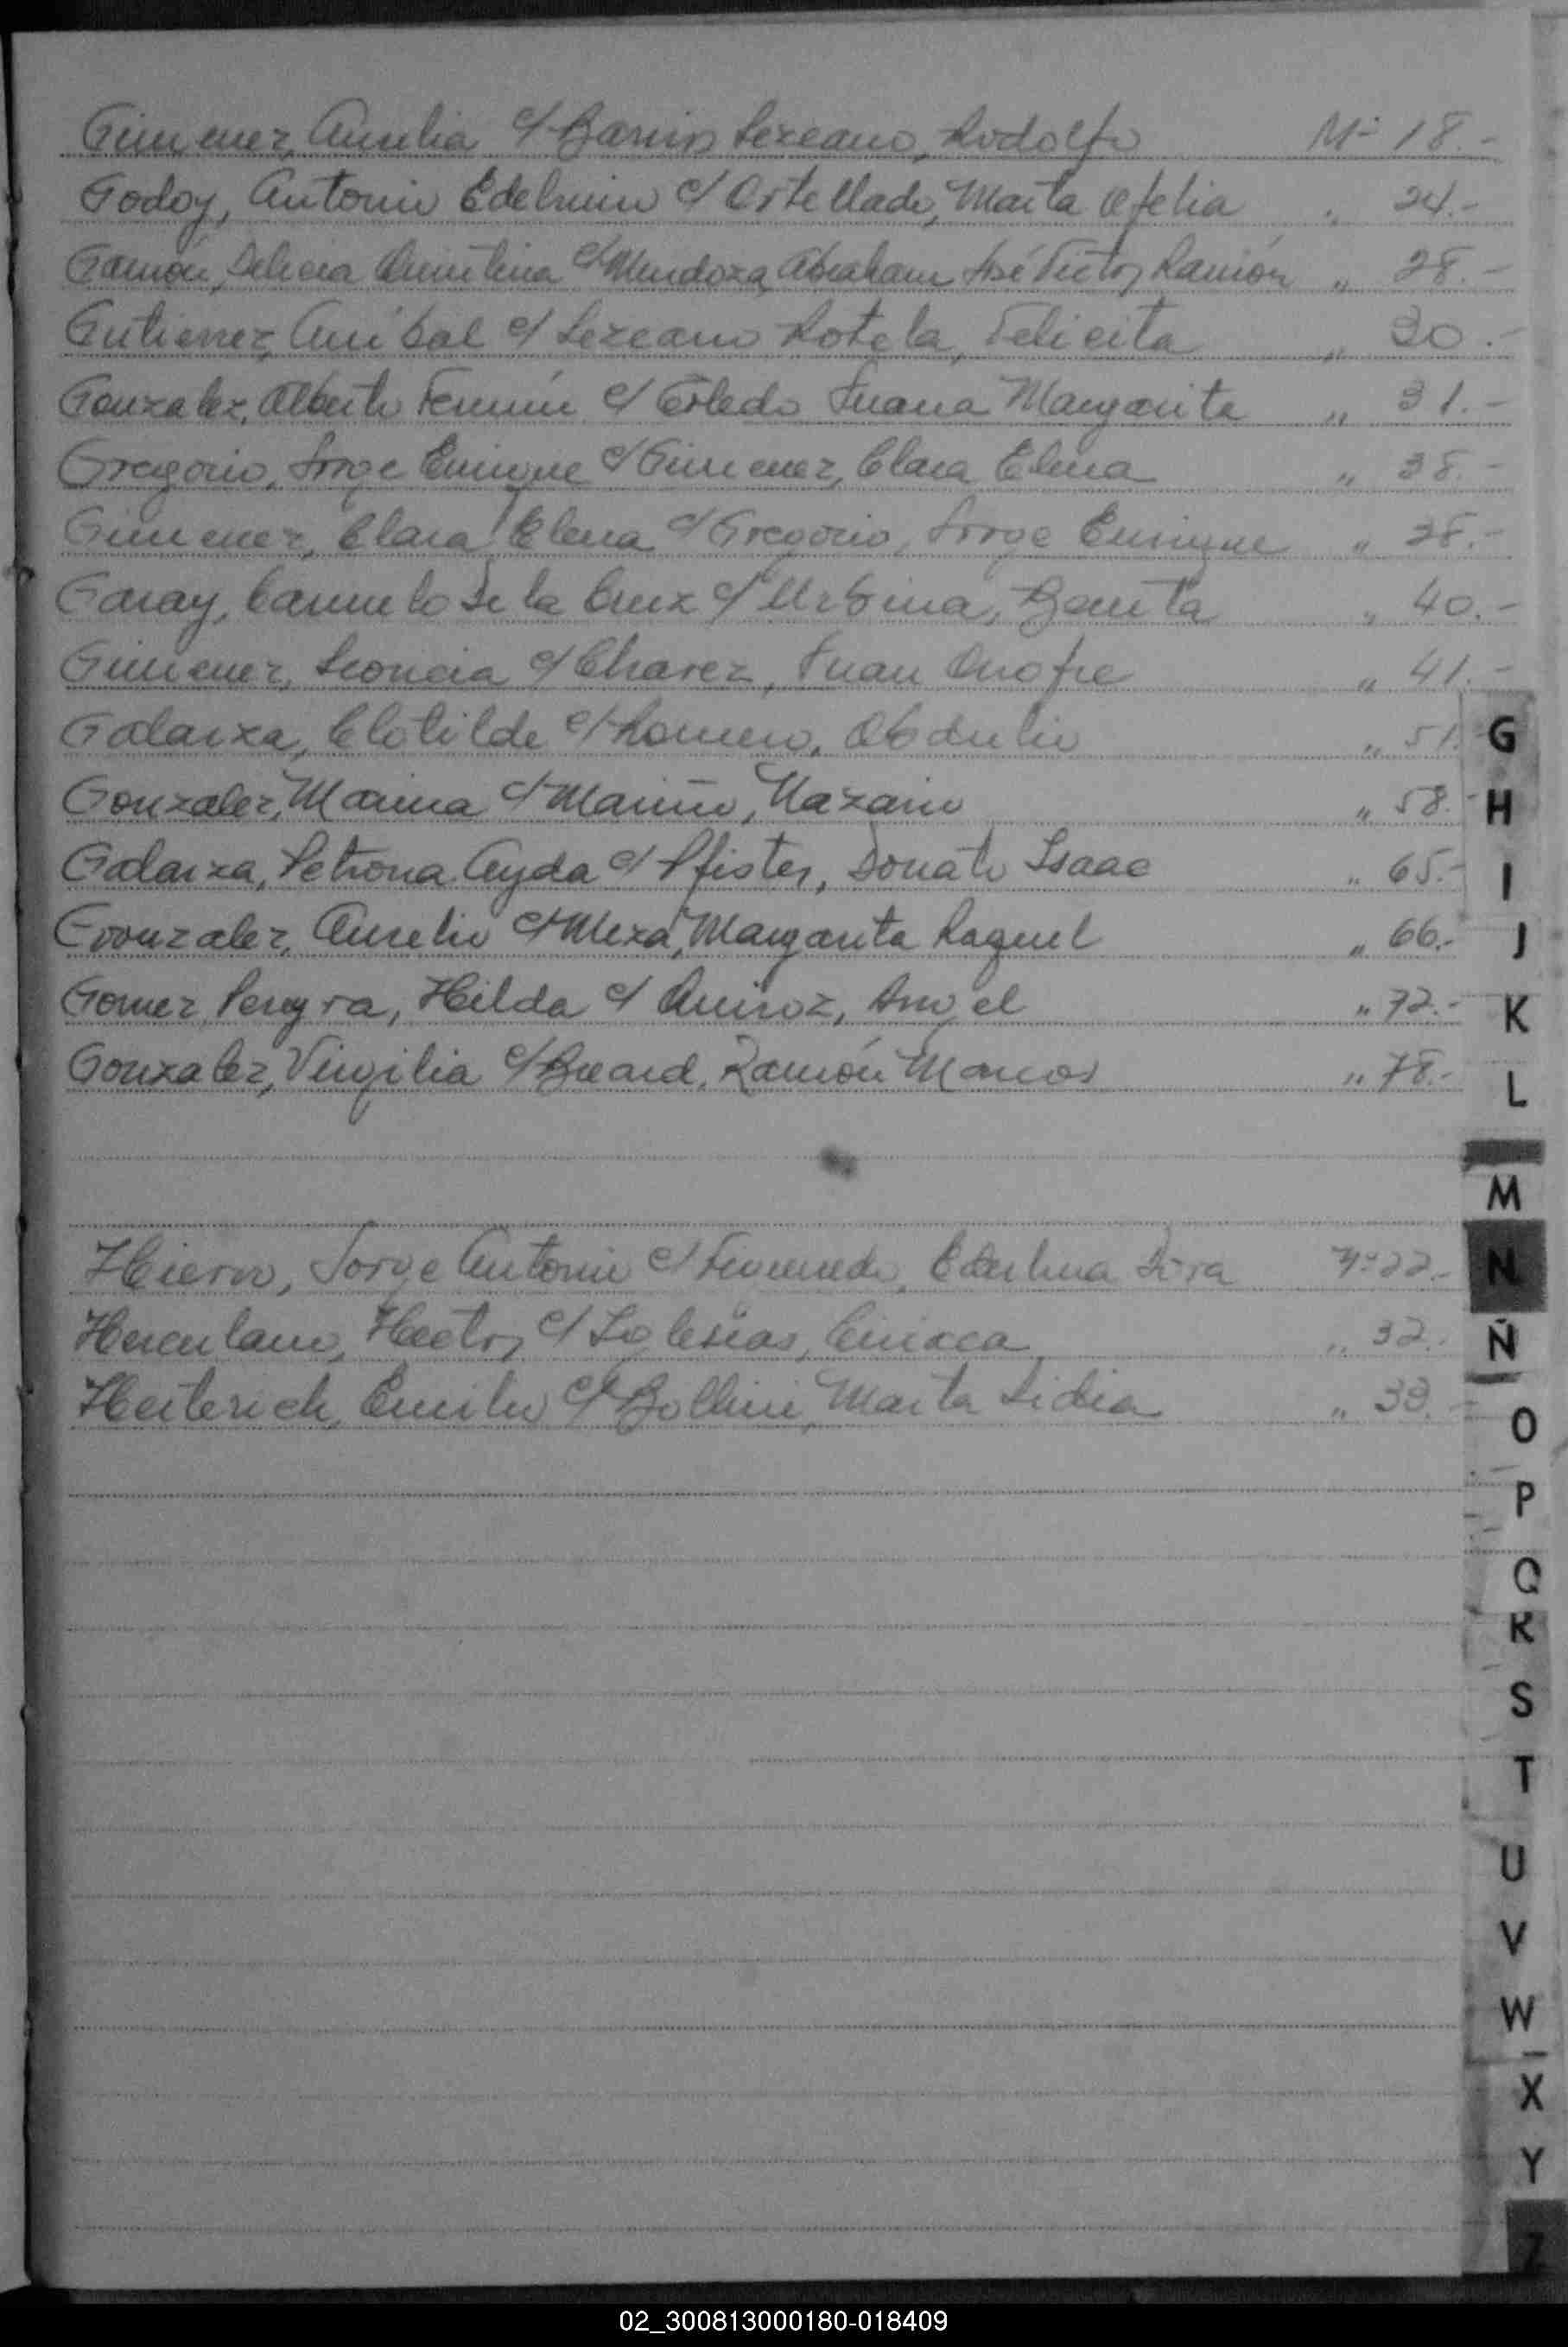 Gimenez, Aurelia c/ Barrios Lezcano, Rodolfo Nº 18.-
Godoy, Antonio Edelmiro c/ Ortellado, Marta Ofelia " 24.-
Gamón, Delicia Quintina c/ Mendoza, Abraham José Victor Ramón " 28.-
Gutierrez, Anibal c/ Lezcano Rotela, Felicita " 30.-
Gonzalez, Alberto Fermín c/ Toledo Juana Margarita " 31.-
Gregorio, Jorge Enrique c/ Gimenez, Clara Elena " 38.-
Gimenez, Clara Elena c/ Gregorio, Jorge Enrique " 38.-
Garay, Carmelo De la Cruz c/ Urbina, Benita " 40.-
Gimenez, Leoncia c/ Chavez, Juan Onofre " 41.-
Galarza, Clotilde c/ Romero, Obdulio " 51.-
Gonzalez, Marina c/ Mariño, Nazario " 58.-
Galarza, Petrona Ayda c/ Pfister, Donato Isaac " 65.-
Gonzalez, Aurelio c/ Meza, Margarita Raquel " 66.-
Gomez Pereyra, Hilda c/ Quiroz, Angel " 72.-
Gonzalez, Virgilia c/ Breard, Ramón Marcos " 78.-
Hierro, Jorge Antonio c/ Figueredo, Edelma Dora Nº 22.-
Herculano, Hector c/ Iglesias, Ciriaca " 32.-
Heiterich, Emilio c/ Bollini, Marta Lidia " 33.-
G
H
I
J
K
L
M
N
Ñ
O
P
Q
R
S
T
U
V
W
X
Y
Z
02_300813000180-018409